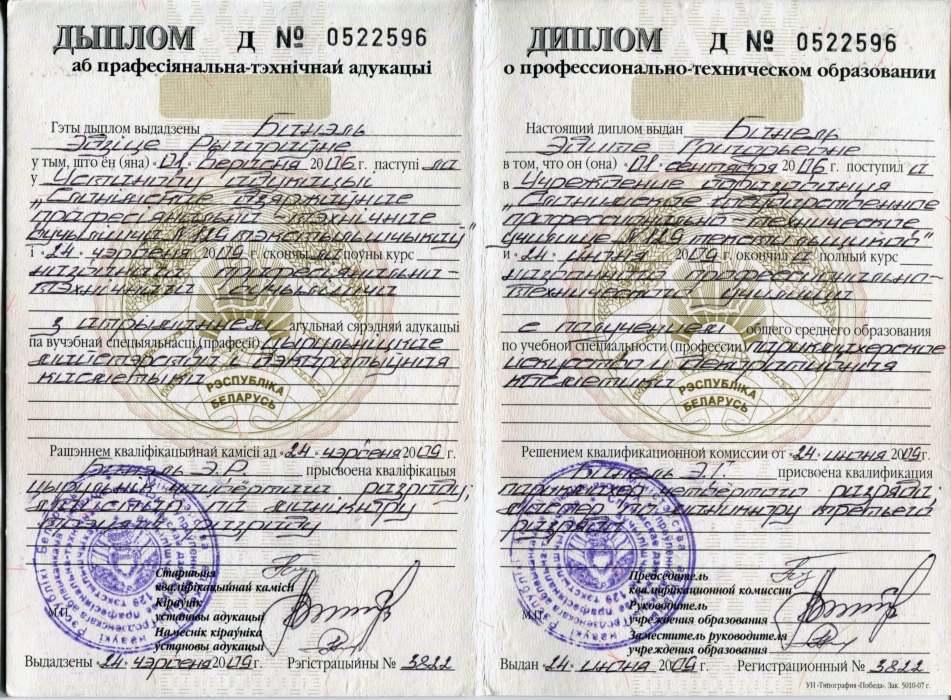 ДЫПЛОМ Д № 0522596
аб прафесіянальна-тэхнічнай адукацыі
Гэты дыплом выдадзены Бінэль
Эдзіце Рыгораўне
у тым, што ён (яна) «01» верасня 2006 г. паступіла
у Установу адукацыі
„Слонімскае дзяржаўнае
прафесіянальна-тэхнічнае
вучылішча №129 тэкстыльшчыкаў"
і «24» чэрвеня 2009 г. скончыла поўны курс
названага прафесіянальна-
тэхнічнага вучылішча
з атрыманнем агульнай сярэдняй адукацыі
па вучэбнай спецыяльнасці (прафесіі) цырульніцкае
майстэрства і дэкаратыўная
касметыка
РЭСПУБЛІКА
БЕЛАРУСЬ
Рашэннем кваліфікацыйнай камісіі ад «24» чэрвеня 2009 г.
Бінэль Э.Р. прысвоена кваліфікацыя
цырульнік чацвёртага разраду,
майстар па манікюру
трэцяга разраду
Старшыня
кваліфікацыйнай камісіі
Кіраўнік
установы адукацыі
М.П.
Намеснік кіраўніка
установы адукацыі
Выдадзены «24» чэрвеня 2009 г. Рэгістрацыйны № 3822
ДИПЛОМ Д № 0522596
о профессионально-техническом образовании
Настоящий диплом выдан Бинель
Эдите Григорьевне
в том, что он (она) «01» сентября 2006 г. поступила
в Учреждение образования
„Слонимское государственное
профессионально-техническое
училище №129 текстильщиков"
и «24» июня 2009 г. окончила полный курс
названного профессионально-
технического училища
с получением общего среднего образования
по учебной специальности (профессии) парикмахерское
искусство и декоративная
косметика
РЭСПУБЛІКА
БЕЛАРУСЬ
Решением квалификационной комиссии от «24» июня 2009 г.
Бинель Э.Г. присвоена квалификация
парикмахер четвёртого разряда,
мастер по маникюру третьего
разряда
Председатель
квалификационной комиссии
Руководитель
учреждения образования
М.П.
Заместитель руководителя
учреждения образования
Выдан «24» июня 2009 г. Регистрационный № 3822
УП «Типография «Победа». Зак. 5010-07 г.